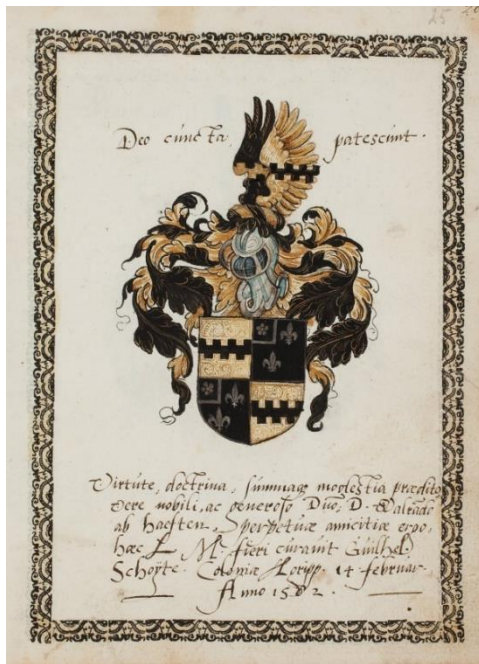 25
Deo cuncta patescunt.
Virtute, doctrina, summaqȝ modestia prædito
vere nobili, ac generoso Dño, D. Walrado
ab Haeften. Sperpetuæ amicitiæ ergo,
hæc L. M. fieri curavit Guilhel.
Schoÿte. Coloniæ Agripp. 14 februar.
Anno 1582.